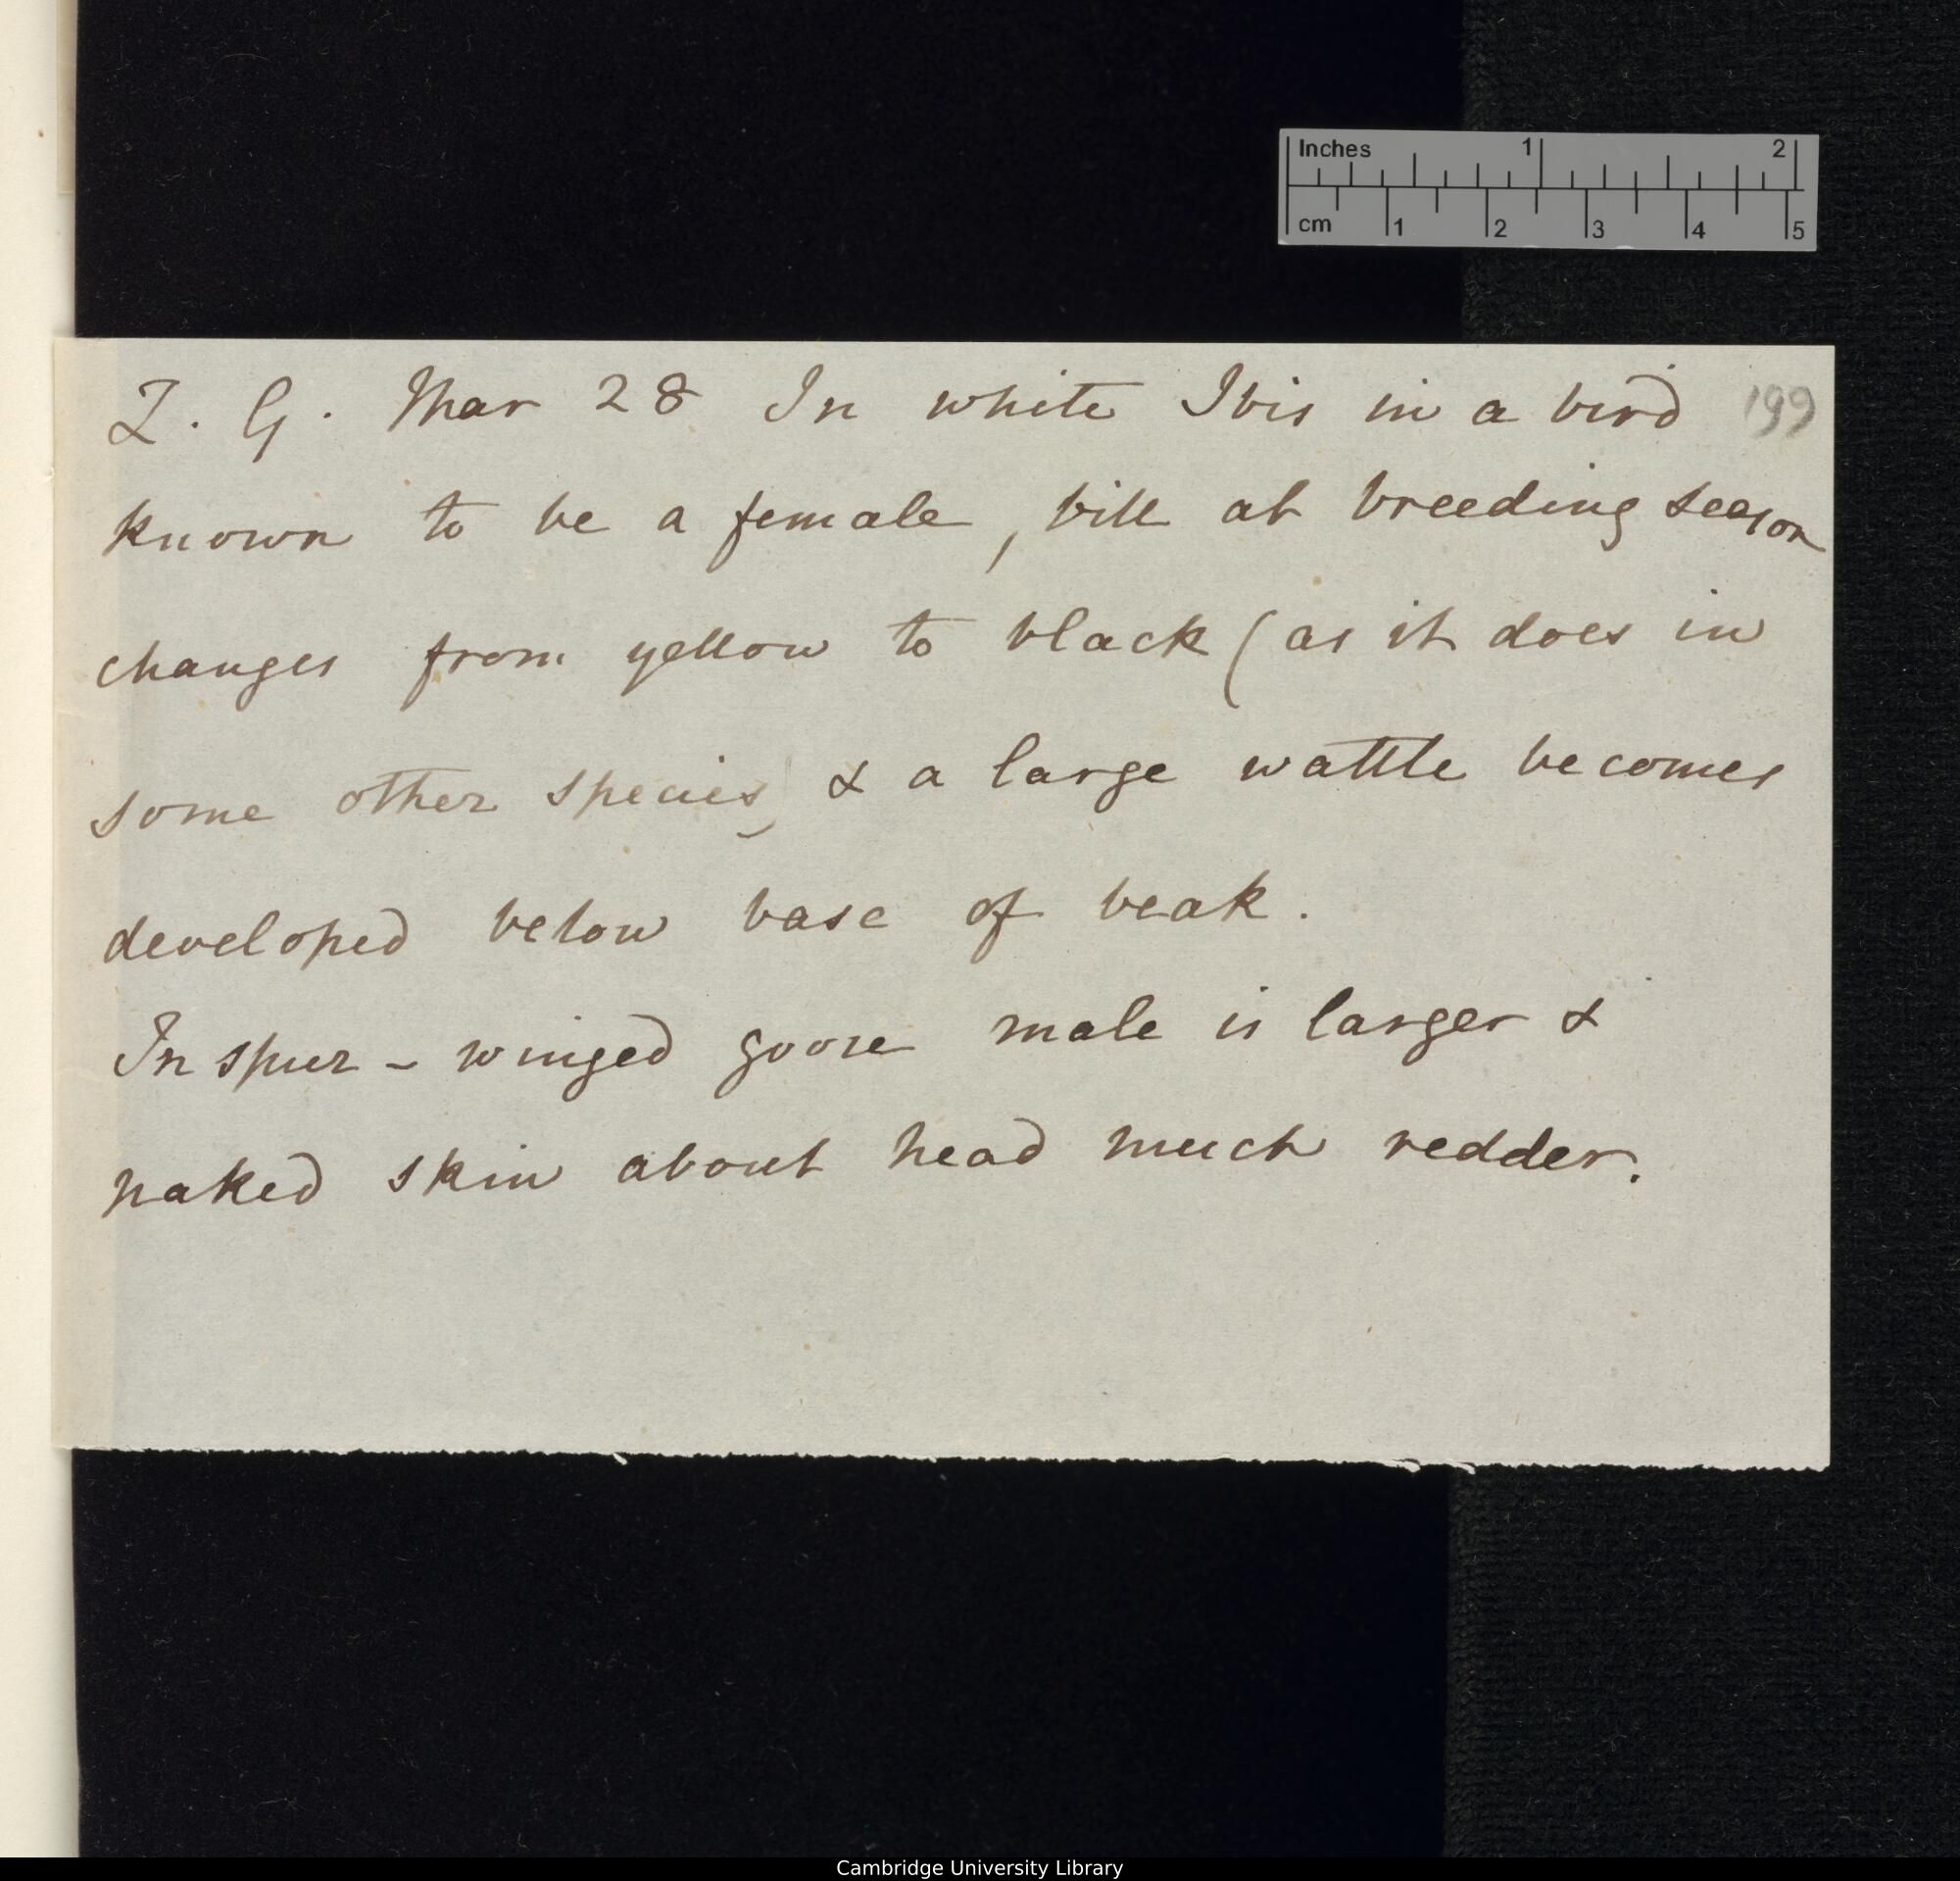 Inches 1 2
cm 1 2 3 4 5
Z. G. Mar 28 In white Ibis in a bird 199
known to be a female, bill at breeding season
changes from yellow to black (as it does in
some other species) & a large wattle becomes
developed below base of beak.
In spur-winged goose male is larger &
naked skin about head much redder.
Cambridge University Library